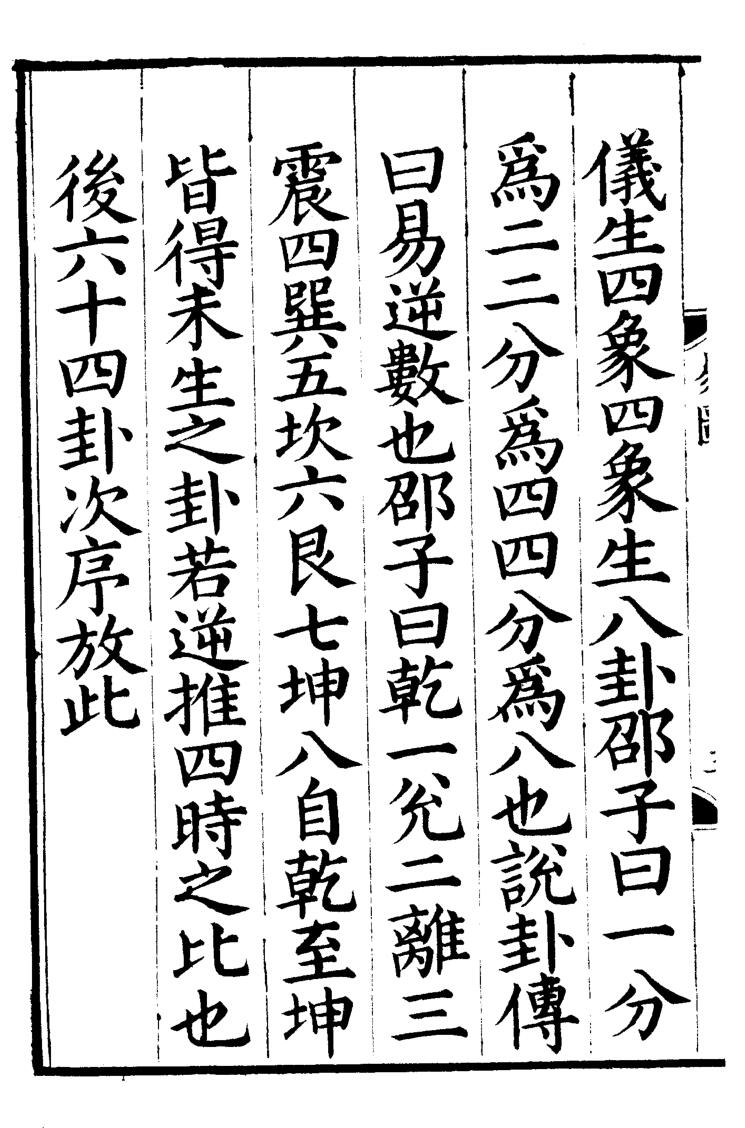 儀生四象四象生八卦邵子曰一分
爲二二分爲四四分爲八也說卦傳
曰易逆數也邵子曰乾一兊二離三
震四巽五坎六艮七坤八自乾至坤
皆得未生之卦若逆推四時之比也
後六十四卦次序放此